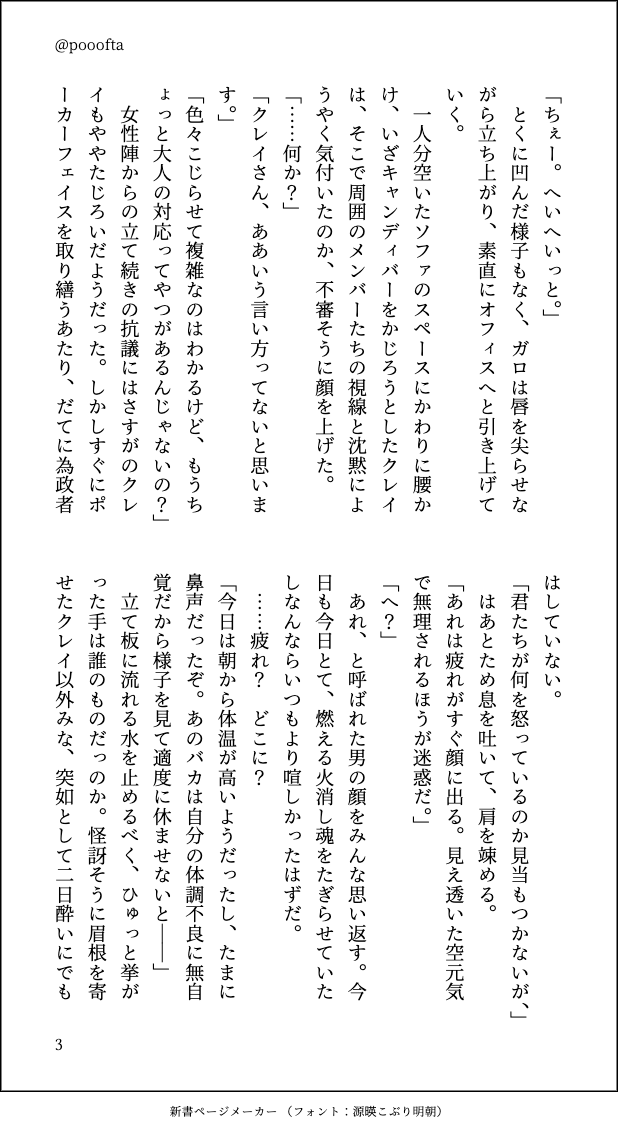 @pooofta
「ちぇー。へいへいっと。」
　とくに凹んだ様子もなく、ガロは唇を尖らせな
がら立ち上がり、素直にオフィスへと引き上げて
いく。
　一人分空いたソファのスペースにかわりに腰か
け、いざキャンディバーをかじろうとしたクレイ
は、そこで周囲のメンバーたちの視線と沈黙によ
うやく気付いたのか、不審そうに顔を上げた。
「……何か？」
「クレイさん、ああいう言い方ってないと思いま
す。」
「色々こじらせて複雑なのはわかるけど、もうち
ょっと大人の対応ってやつがあるんじゃないの？」
　女性陣からの立て続きの抗議にはさすがのクレ
イもややたじろいだようだった。しかしすぐにポ
ーカーフェイスを取り繕うあたり、だてに為政者
はしていない。
「君たちが何を怒っているのか見当もつかないが、」
　はあとため息を吐いて、肩を竦める。
「あれは疲れがすぐ顔に出る。見え透いた空元気
で無理されるほうが迷惑だ。」
「へ？」
　あれ、と呼ばれた男の顔をみんな思い返す。今
日も今日とて、燃える火消し魂をたぎらせていた
しなんならいつもより喧しかったはずだ。
　……疲れ？　どこに？
「今日は朝から体温が高いようだったし、たまに
鼻声だったぞ。あのバカは自分の体調不良に無自
覚だから様子を見て適度に休ませないと――」
　立て板に流れる水を止めるべく、ひゅっと挙が
った手は誰のものだっのか。怪訝そうに眉根を寄
せたクレイ以外みな、突如として二日酔いにでも
3
新書ページメーカー（フォント：源暎こぶり明朝）